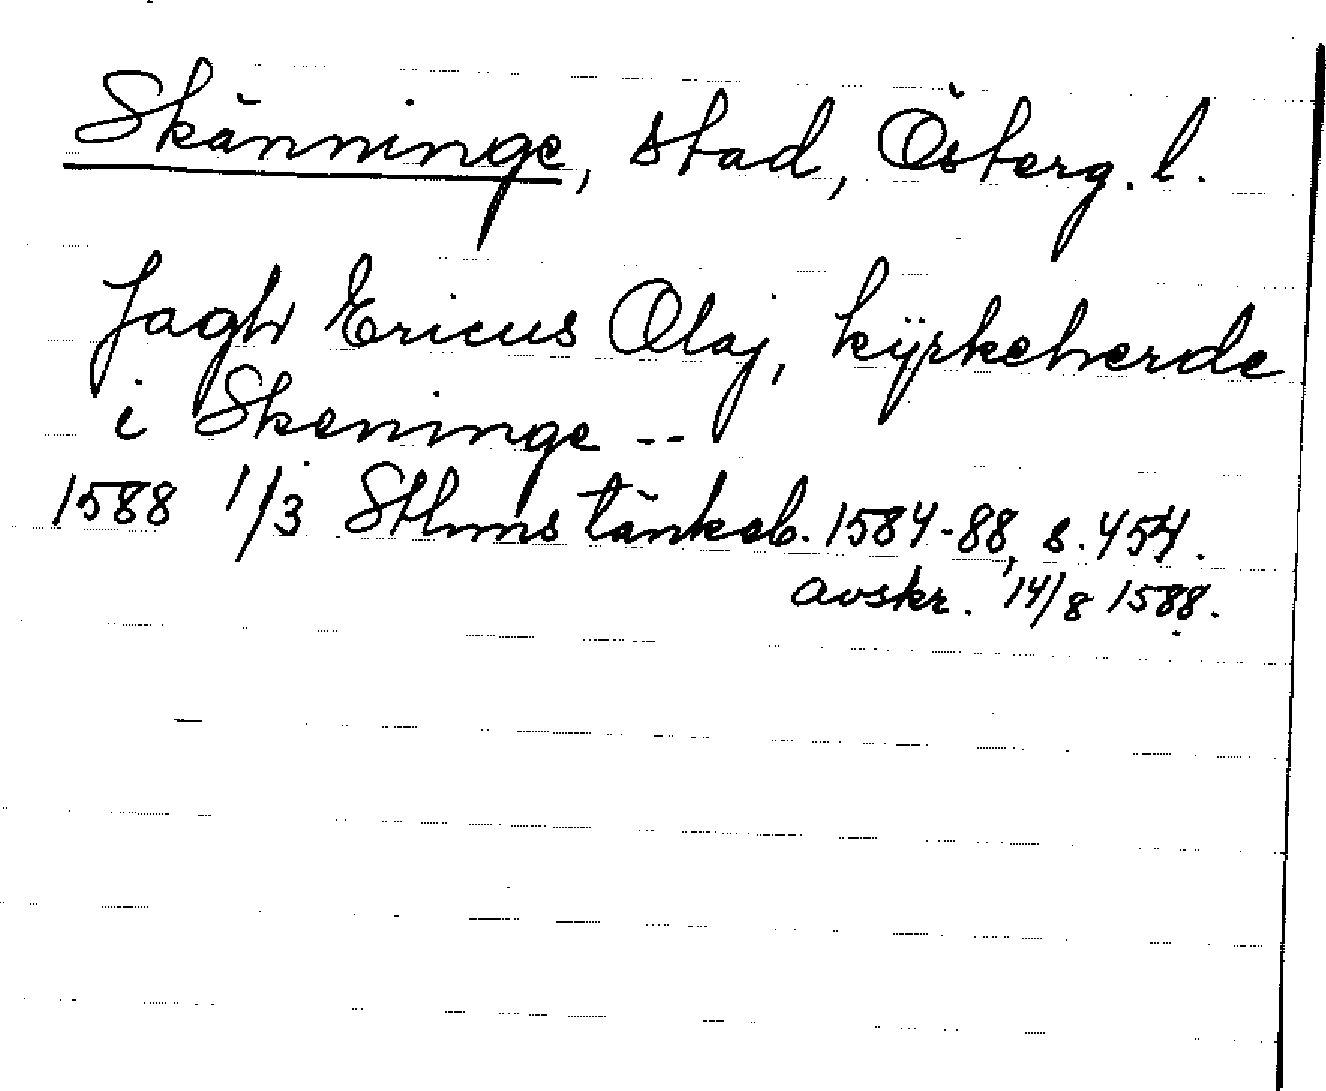 Skänninge, stad, Österg. l.
Jagh Ericus Olaj, kÿrkeherde
i Skeninge --
1588 1/3 Sthms tänkeb. 1584-88, s. 454.
avskr. 14/8 1588.